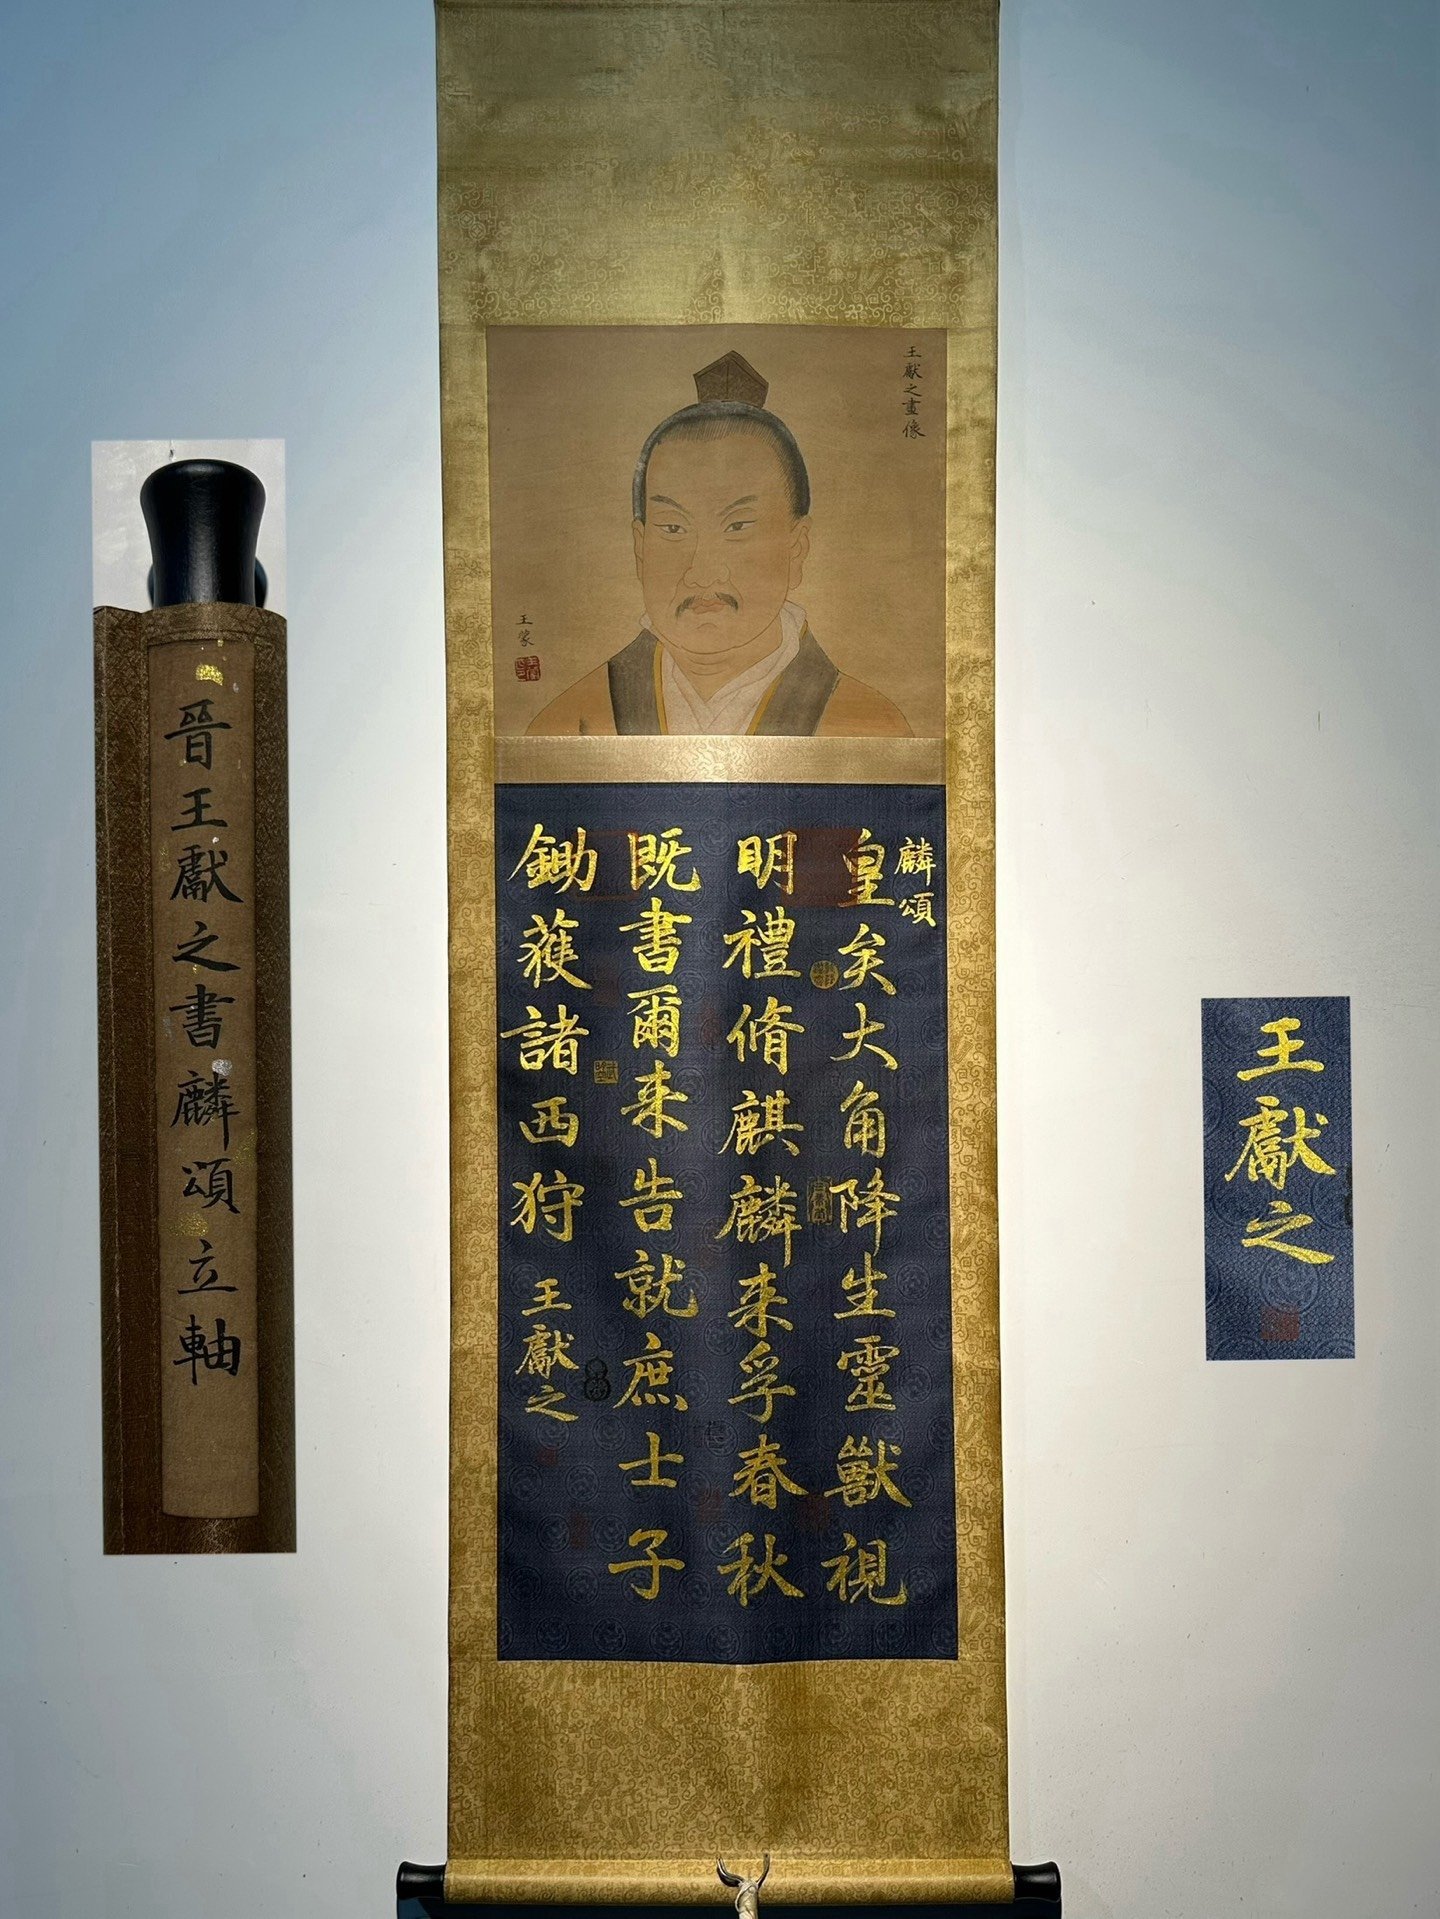 晉王獻之書麟頌立軸
王獻之畫像
王蒙
麟頌
皇矣大角降生靈獸視
明禮脩麒麟来孚春秋
既書爾来告就庶士子
鋤䕶諸西狩
王獻之
王獻之